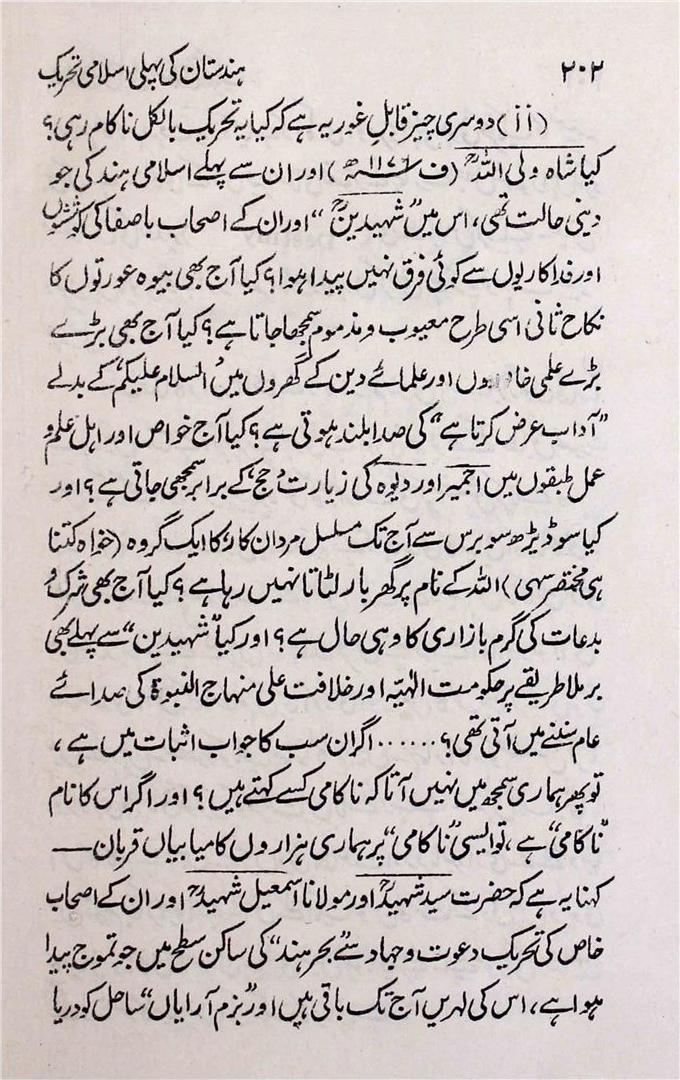 ۲۰۲ ہندستان کی پہلی اسلامی تحریک
(ii) دوسری چیز قابلِ غور یہ ہے کہ کیا یہ تحریک بالکل ناکام رہی؟
کیا شاہ ولی اللہؒ (ف ۱۱۷۶ھ) اور ان سے پہلے اسلامی ہند کی جو
دینی حالت تھی، اس میں "شہیدینؒ" اور ان کے اصحاب باصفا کی کوششوں
اور فداکاریوں سے کوئی فرق نہیں پیدا ہوا؟ کیا آج بھی بیوہ عورتوں کا
نکاح ثانی اسی طرح معیوب و مذموم سمجھا جاتا ہے؟ کیا آج بھی بڑے
بڑے علمی اور علمائے دین کے گھروں میں "السلام علیکم" کے بدلے
"آداب عرض کرتا ہے" کی صدا بلند ہوتی ہے؟ کیا آج خواص اور اہل علم و
عمل طبقوں میں اجمیر اور دیوہ کی زیارت "حج" کے برابر سمجھی جاتی ہے؟ اور
کیا سو ڈیڑھ سو برس سے آج تک مسلسل مردان کار کا ایک گروہ (خواہ کتنا
ہی مختصر سہی) اللہ کے نام پر گھر بار لٹاتا نہیں رہا ہے؟ کیا آج بھی شرک و
بدعات کی گرم بازاری کا وہی حال ہے؟ اور کیا "شہیدین" سے پہلے بھی
برملا طریقے پر حکومت الٰہیہ اور خلافت علی منہاج النبوۃ کی صدائے
عام سننے میں آتی تھی؟ ...... اگر ان سب کا جواب اثبات میں ہے،
تو پھر ہماری سمجھ میں نہیں آتا کہ ناکامی کسے کہتے ہیں؟ اور اگر اس کا نام
"ناکامی" ہے، تو ایسی "ناکامی" پر ہماری ہزاروں کامیابیاں قربان —
کہنا یہ ہے کہ حضرت سید شہیدؒ اور مولانا اسمعیل شہیدؒ اور ان کے اصحاب
خاص کی تحریک دعوت و جہاد سے "بحر ہند" کی ساکن سطح میں جو تموج پیدا
ہوا ہے، اس کی لہریں آج تک باقی ہیں اور "بزم آرایاں" ساحل کو دریا